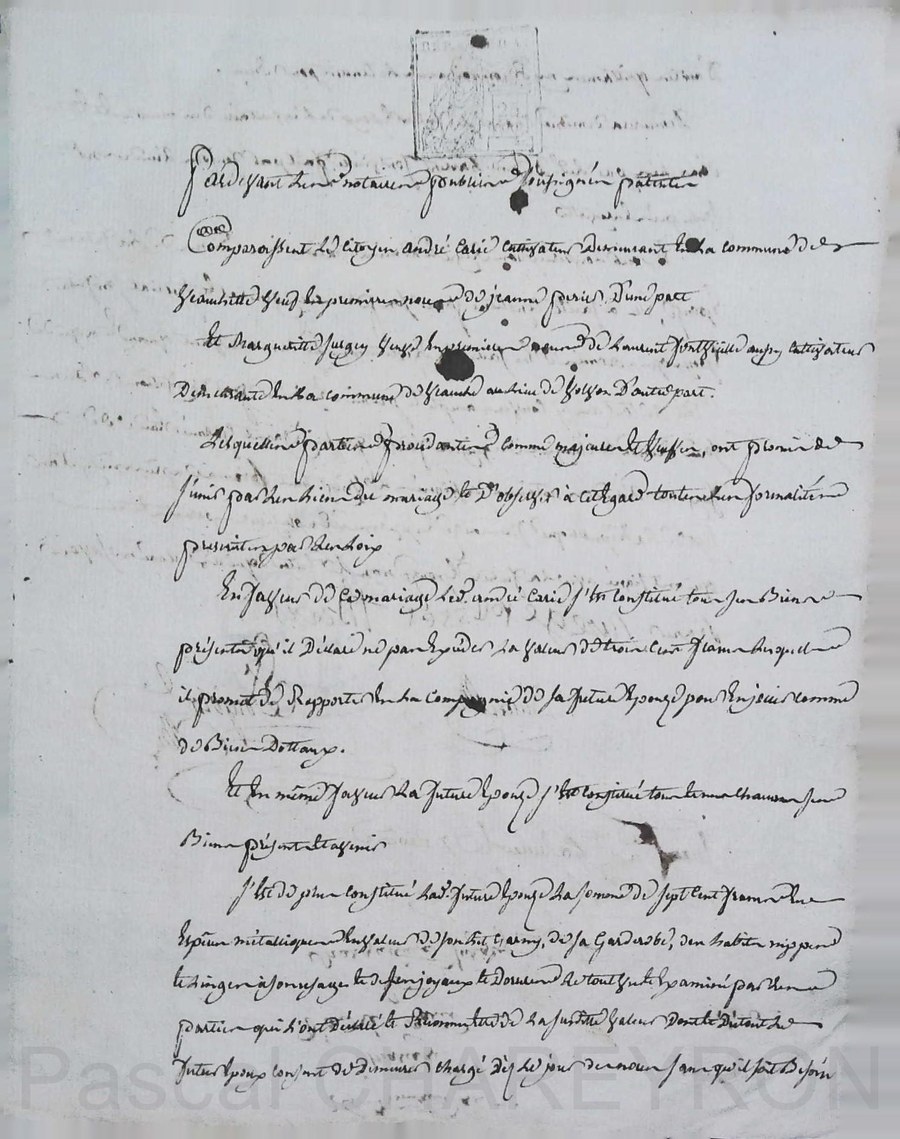 Pardevant les notaires publics soussignés patentés
Comparoissent le citoyen andré Carié Cultivateur demeurant en la commune de
veuf en premieres noces de jeanne peries d'une part
Et Marguerite surgey veuve en premieres noces de Laurent fontvieille aussy cultivateur
Demeurante en la commune de au lieu de d'autre part.
Lesquelles parties procedantes comme majeures et , ont promis de
s'unir par les liens du mariage et d'observer à cet egard toutes les formalités
prescrites par les loix
En faveur de ce mariage led. andré Carié s'est constitué tous ses Biens
présents qu'il Déclare ne pas Exceder la valeur de trois cent francs lesquels
il promet de Rapporter en la Compagnie de sa future Epouze pour En jouir comme
de Biens Dottaux.
Et en même faveur la future Epouze s'est constitué tous et uns chacuns ses
Biens présents et avenir
s'est de plus constitué lad. future Epouze la somme de sept cent francs en
Espèces métaliques En valeur de son lit garny, de sa Garderobe, des habits nippes
et linges à son usage et de ses joyaux et Dorures le tout vu et Examiné par les
parties qui l'ont Déclaré et de la susdite valeur Dont et Du tout le
futur Epoux consent de Demeurer chargé Dès le jour des noces sans qu'il soit Besoin
Pascal CHAREYRON